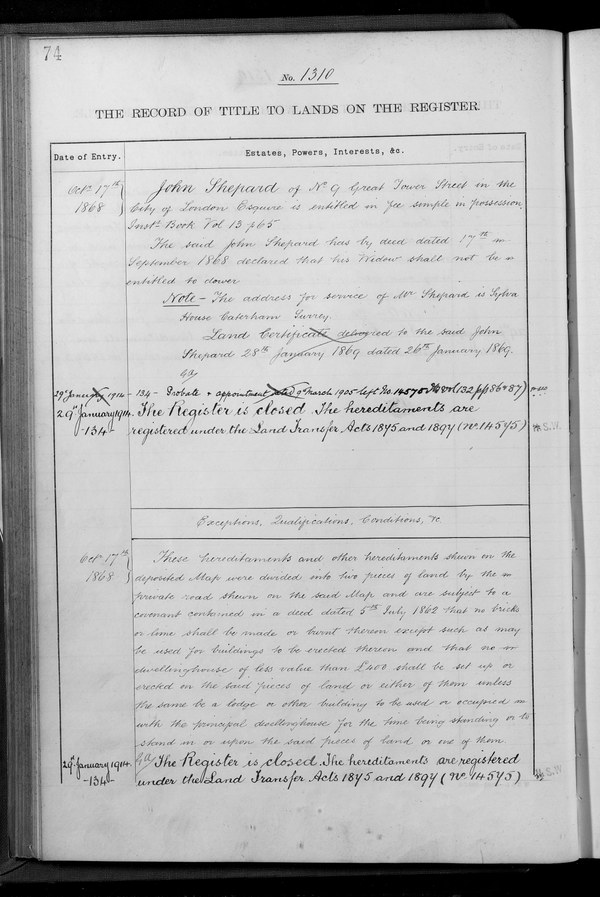 74
No. 1310
THE RECORD OF TITLE TO LANDS ON THE REGISTER.
Date of Entry.
Estates, Powers, Interests, &c.
Octr 17th
1868
John Shepard of No 9 Great Tower Street in the
City of London Esquire is entitled in fee simple in possession.
Inst. Book Vol 13 p65
The said John Shepard has by deed dated 17th
September 1868 declared that his Widow shall not be
entitled to dower
Note - The address for service of Mr Shepard is Sylva
House Caterham Surrey.
Land Certificate delivered to the said John
Shepard 28th January 1869 dated 26th January 1869.
29th January 1914
-134- Probate & appointment dated 9th March 1905 left No. 14575 vol 132 pp 86 & 87)
29th January 1914.
-134-
The Register is closed. The hereditaments are
registered under the Land Transfer Acts 1875 and 1897 (No. 14575)
S.W.
Exceptions, Qualifications, Conditions, &c.
Octr 17th
1868
These hereditaments and other hereditaments shewn on the
deposited Map were divided into two pieces of land by the
private road shewn on the said Map and are subject to a
covenant contained in a deed dated 5th July 1862 that no bricks
or lime shall be made or burnt thereon except such as may
be used for buildings to be erected thereon and that no
dwellinghouse of less value than £400 shall be set up or
erected on the said pieces of land or either of them unless
the same be a lodge or other building to be used or occupied
with the principal dwellinghouse for the time being standing or to
stand in or upon the said pieces of land or one of them.
29th January 1914.
-134-
The Register is closed. The hereditaments are registered
under the Land Transfer Acts 1875 and 1897 (No. 14575)
S.W.